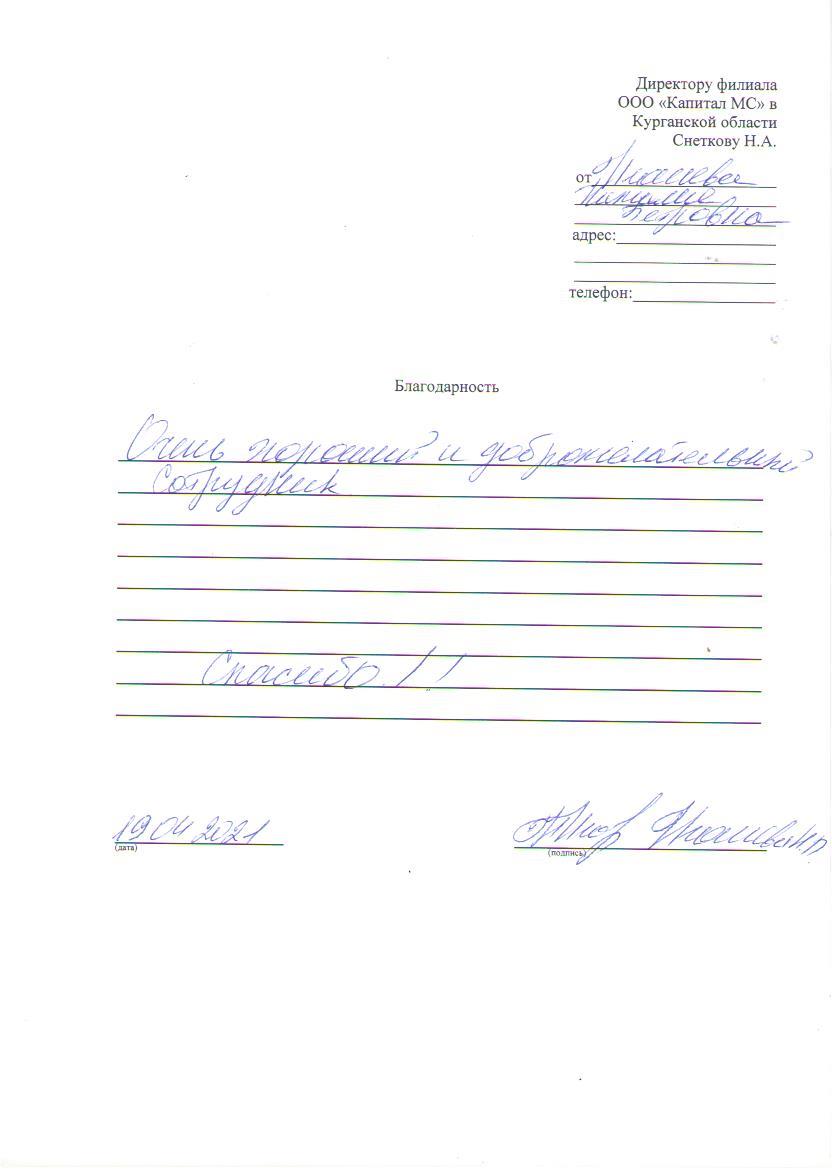 Директору филиала
ООО «Капитал МС» в
Курганской области
Снеткову Н.А.
от
Наталие
Петровна
адрес:
телефон:
Благодарность
Очень хороший и доброжелательный
сотрудник
Спасибо!!
19 04 2021
(дата)
(подпись)